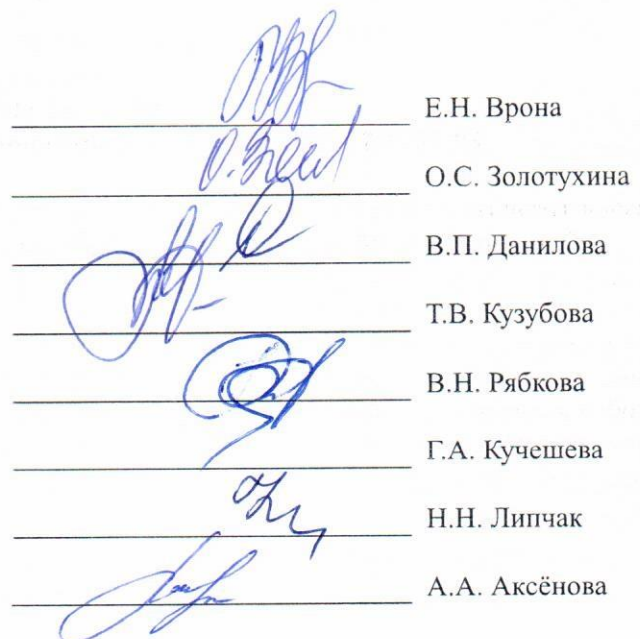 Е.Н. Врона
О.С. Золотухина
В.П. Данилова
Т.В. Кузубова
В.Н. Рябкова
Г.А. Кучешева
Н.Н. Липчак
А.А. Аксёнова